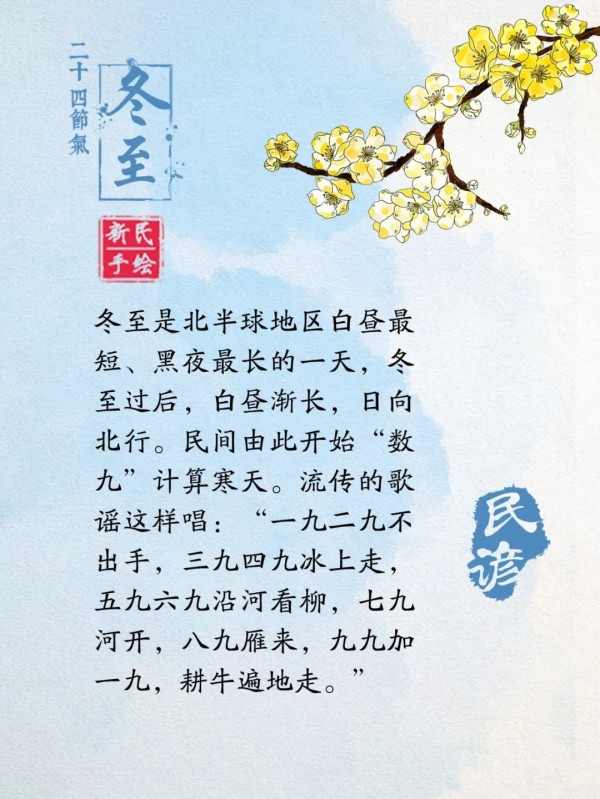 二十四節氣
冬至
新民
手绘
冬至是北半球地区白昼最
短、黑夜最长的一天，冬
至过后，白昼渐长，日向
北行。民间由此开始“数
九”计算寒天。流传的歌
谣这样唱：“一九二九不
出手，三九四九冰上走，
五九六九沿河看柳，七九
河开，八九雁来，九九加
一九，耕牛遍地走。”
民谚